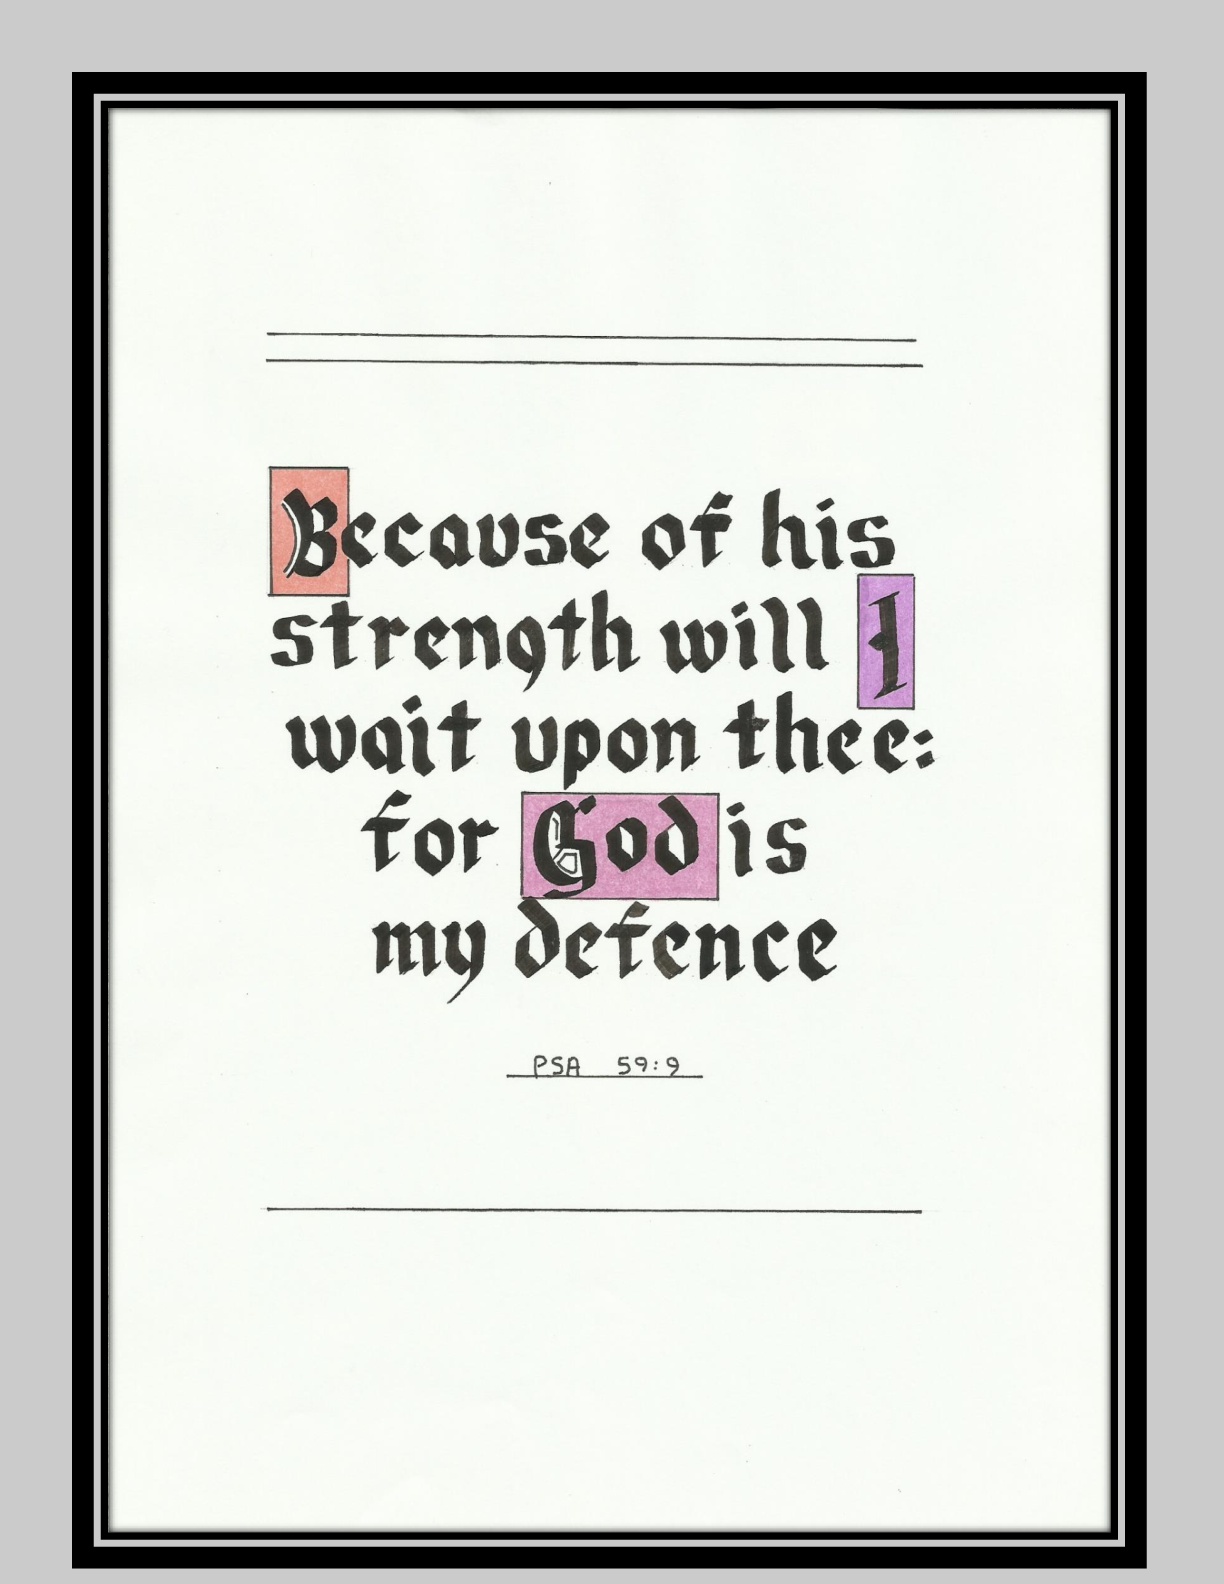 Because of his
strength will I
wait upon thee:
for God is
my defence
PSA 59:9